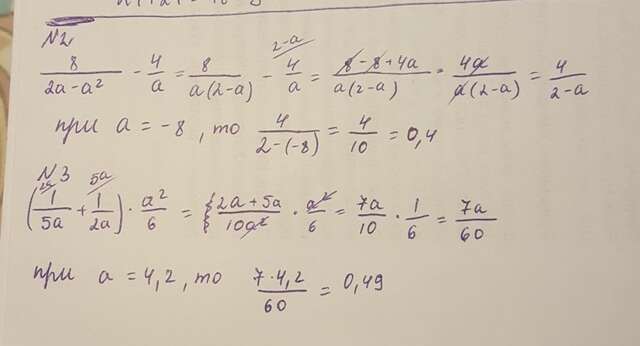 N2
8/(2a-a²) - 4/a = 8/(a(2-a)) - 4/a ^(2-a) = (8-8+4a)/(a(2-a)) = 4a/(a(2-a)) = 4/(2-a)
при a = -8, то 4/(2-(-8)) = 4/10 = 0,4
N3
(1/5a ^2a + 1/2a ^5a) · a²/6 = (2a+5a)/10a² · a²/6 = 7a/10 · 1/6 = 7a/60
при a = 4,2, то 7·4,2/60 = 0,49